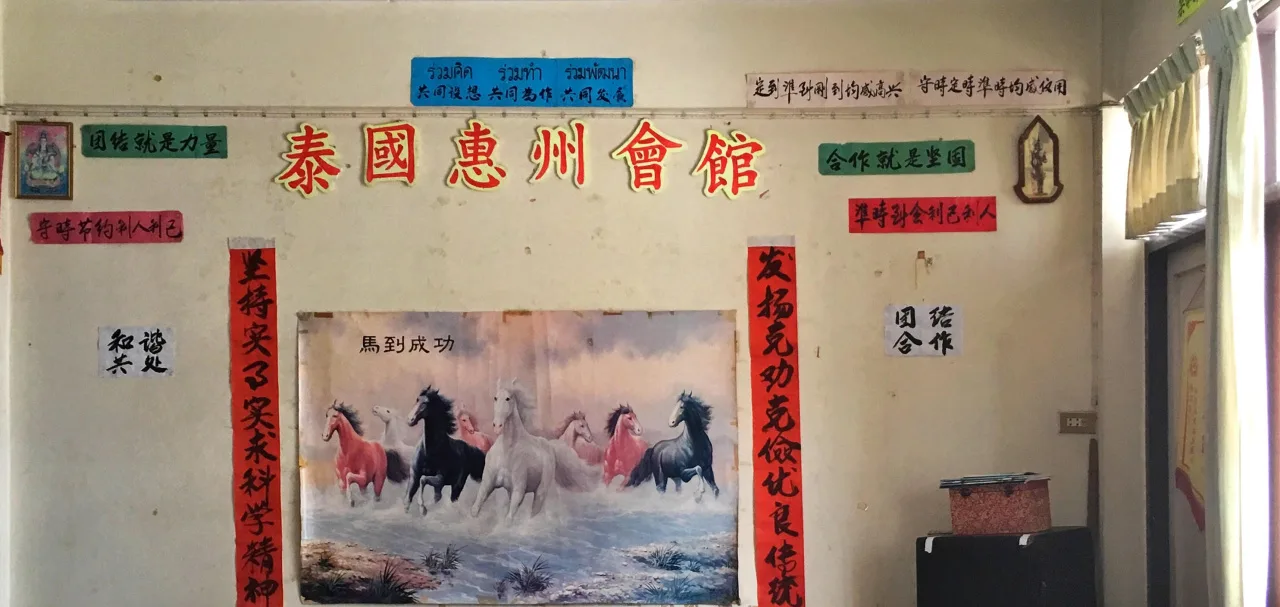 ร่วมคิด ร่วมทำ ร่วมพัฒนา
共同设想 共同为作 共同发展
定到準到刚到均成高兴
守時定時準時均成仪用
团结就是力量
泰國惠州會館
合作就是坚固
守時节约利人利己
準時到会利己利人
坚持实事实求科学精神
发扬克劝克俭优良传统
馬到成功
和谐
共处
团结
合作